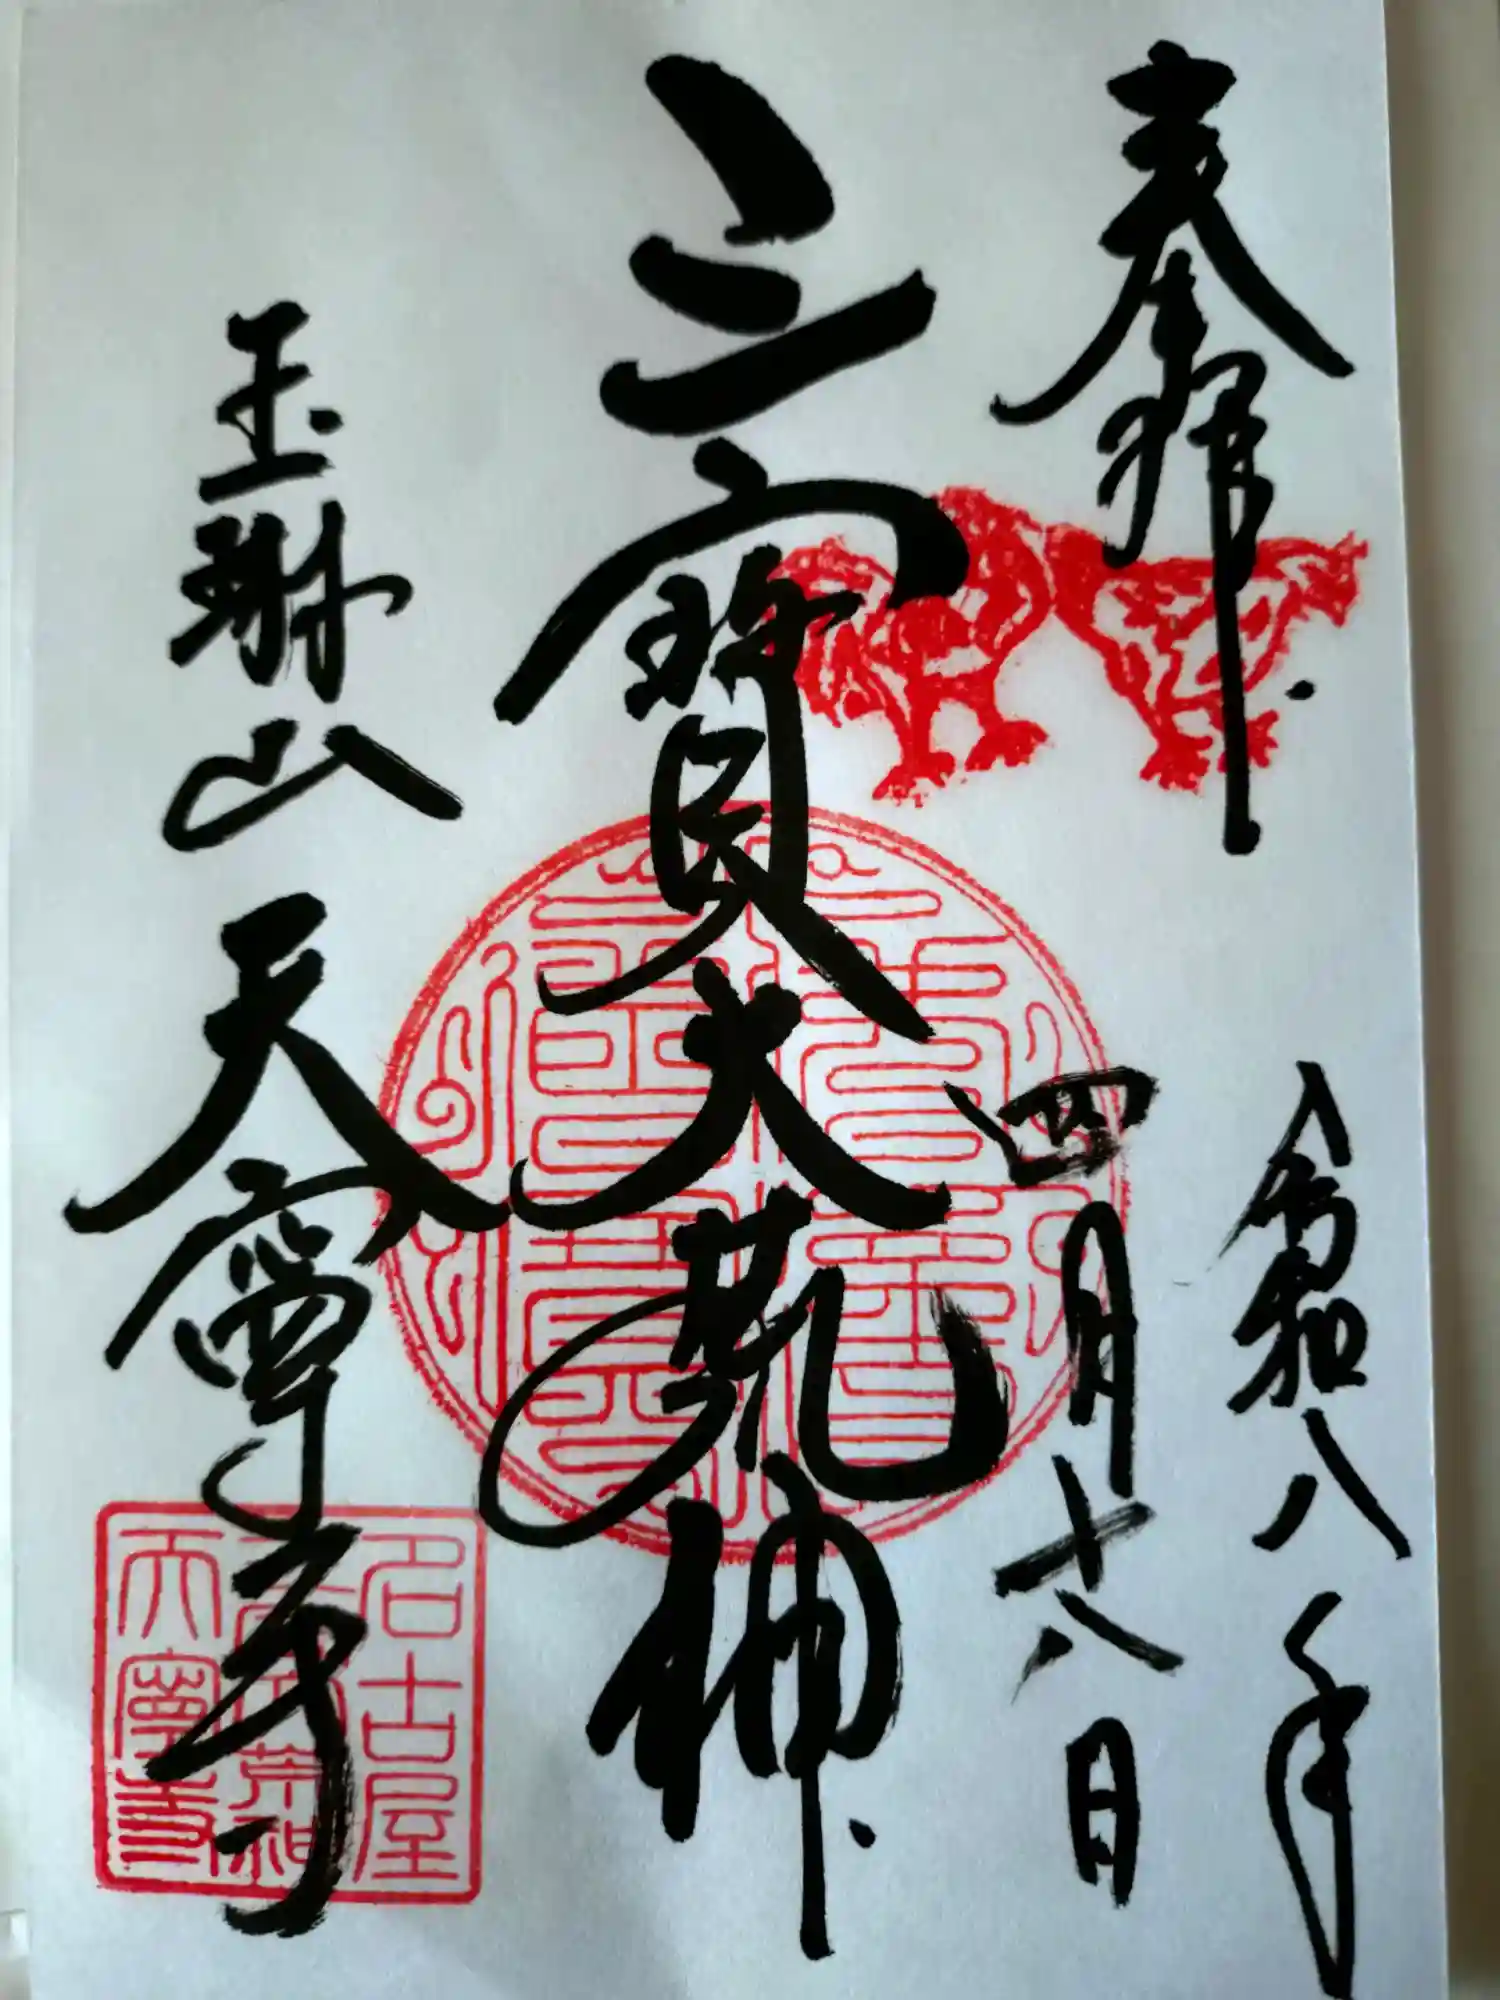 奉拜
令和八年
四月十八日
三寳大荒神
玉琳山
天寧寺
名古屋
天寧寺